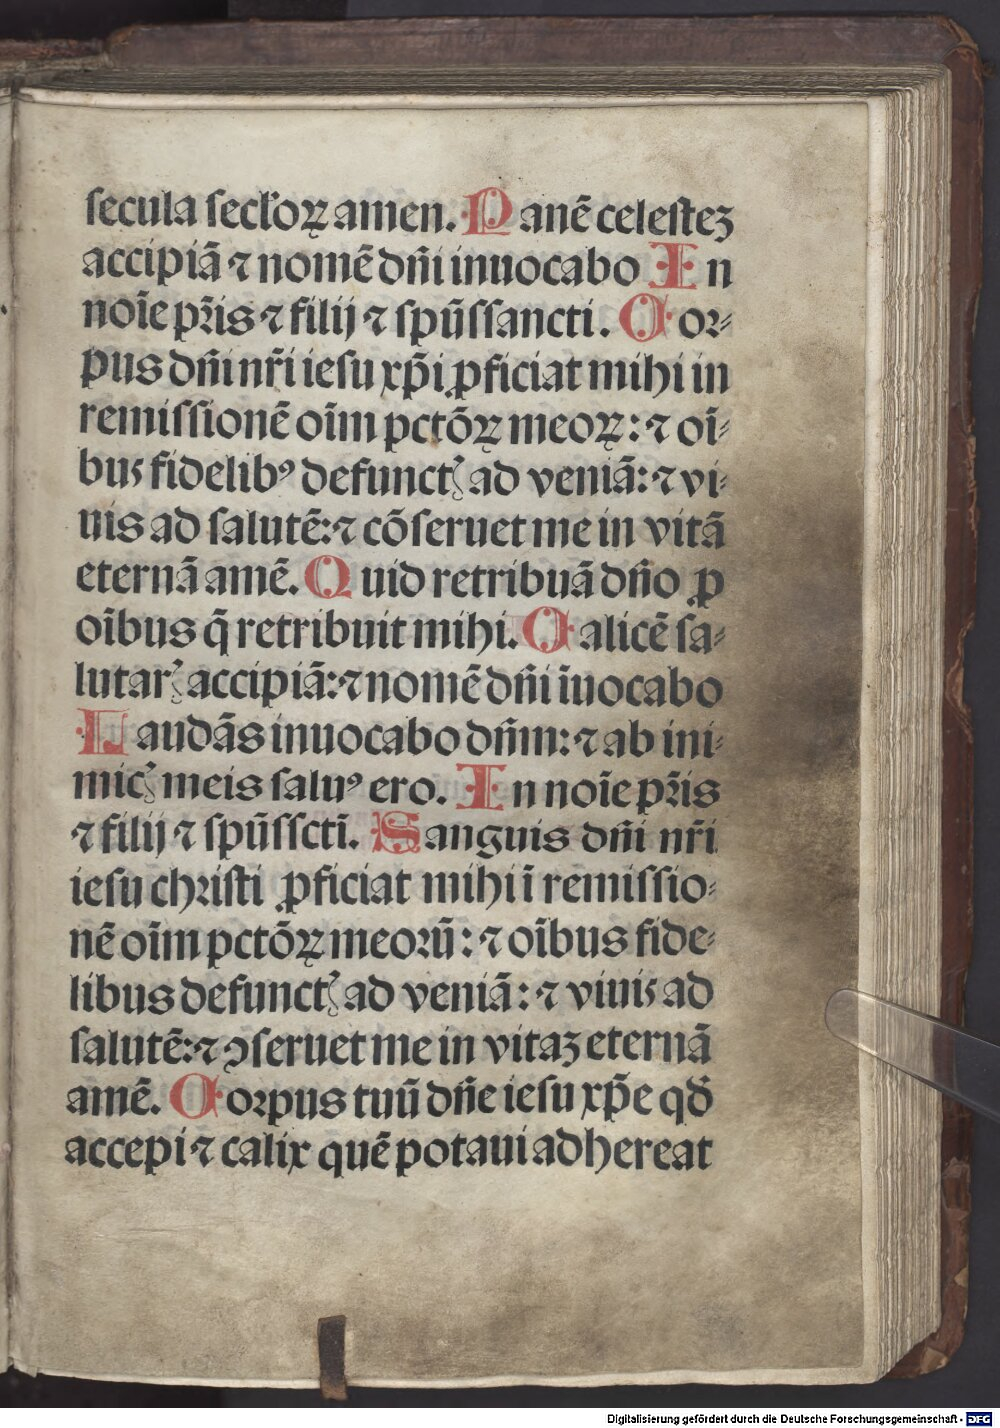 secula secƚoꝝ amen. Panē celesteʒ
accipiā ⁊ nomē dn̄i inuocabo In
noīe pr̄is ⁊ filij ⁊ spūssancti. Cor⸗
pus dn̄i nr̄i iesu xp̄i ꝓficiat mihi in
remissionē oīm pctōꝝ meoꝝ: ⁊ oī⸗
bus fidelibꝰ defunctꝭ ad veniā: ⁊ vi⸗
uis ad salutē: ⁊ cōseruet me in vitā
eternā amē. Quid retribuā dn̄o ꝓ
oībus q̄ retribuit mihi. Calicē sa⸗
lutarꝭ accipiā: ⁊ nomē dn̄i īuocabo
Laudās inuocabo dn̄m: ⁊ ab ini⸗
micꝭ meis saluꝰ ero. In noīe pr̄is
⁊ filij ⁊ spūsscti. Sanguis dn̄i nr̄i
iesu christi ꝓficiat mihi ī remissio⸗
nē oīm pctōꝝ meorū: ⁊ oībus fide⸗
libus defunctꝭ ad veniā: ⁊ viuis ad
salutē: ⁊ ꝯseruet me in vitaʒ eternā
amē. Corpus tuū dn̄e iesu xp̄e qd̄
accepi ⁊ calix quē potaui adhereat
Digitalisierung gefördert durch die Deutsche Forschungsgemeinschaft - DFG